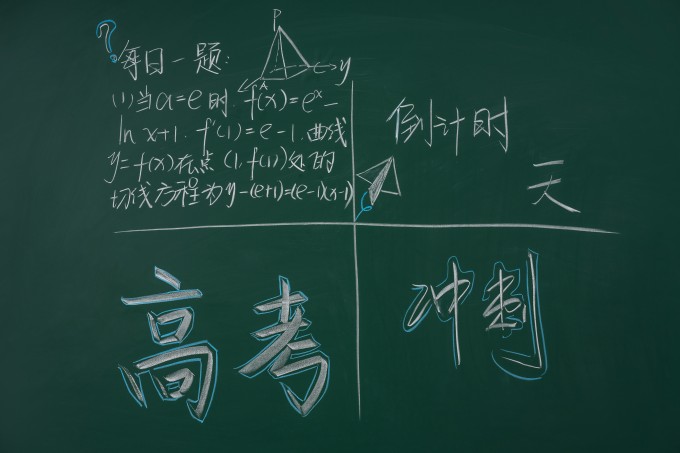 ?
P
每日一题:
x y
(1)当a=e时,f(x)=eˣ-
ln x+1,f'(1)=e-1.曲线
y=f(x)在点(1,f(1))处的
切线方程为y-(e+1)=(e-1)(x-1)
倒计时
天
高考
冲刺